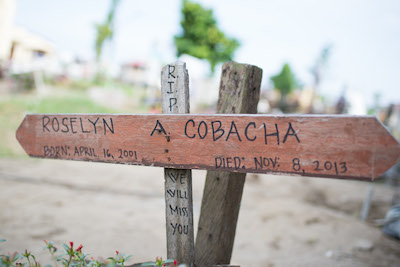 RIP
ROSELYN A. COBACHA
BORN: APRIL 16, 2001 DIED: NOV. 8, 2013
WE
WILL
MISS
YOU